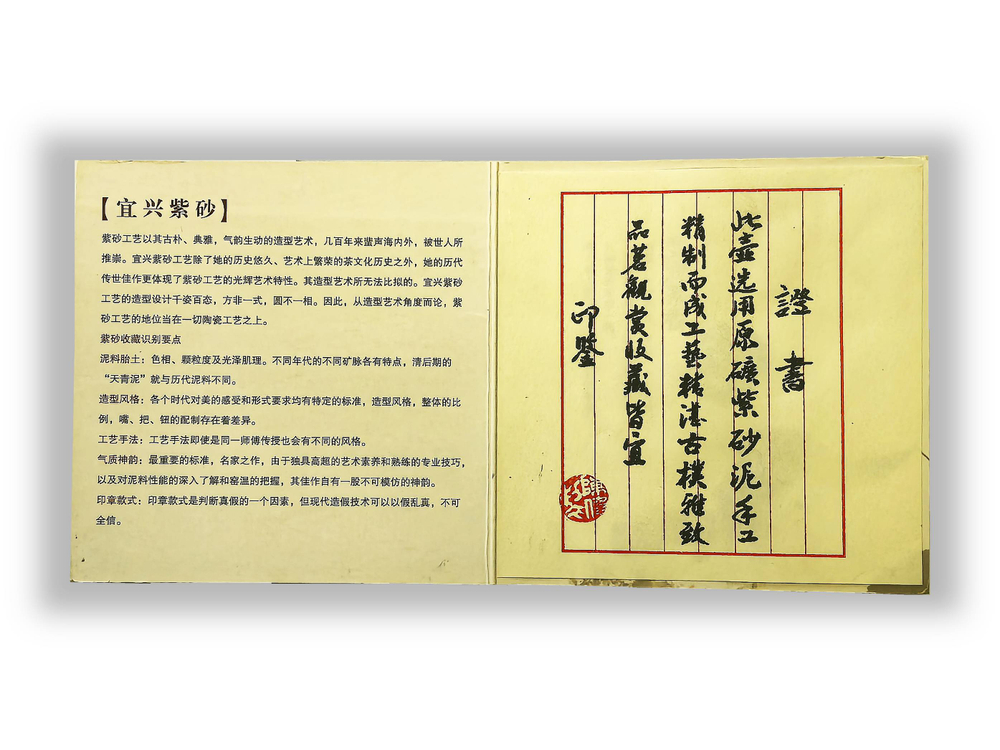 【宜兴紫砂】
紫砂工艺以其古朴、典雅，气韵生动的造型艺术，几百年来蜚声海内外，被世人所
推崇。宜兴紫砂工艺除了她的历史悠久、艺术上繁荣的茶文化历史之外，她的历代
传世佳作更体现了紫砂工艺的光辉艺术特性。其造型艺术所无法比拟的。宜兴紫砂
工艺的造型设计千姿百态，方非一式，圆不一相。因此，从造型艺术角度而论，紫
砂工艺的地位当在一切陶瓷工艺之上。
紫砂收藏识别要点
泥料胎土：色相、颗粒度及光泽肌理。不同年代的不同矿脉各有特点，清后期的
“天青泥”就与历代泥料不同。
造型风格：各个时代对美的感受和形式要求均有特定的标准，造型风格，整体的比
例，嘴、把、钮的配制存在着差异。
工艺手法：工艺手法即使是同一师傅传授也会有不同的风格。
气质神韵：最重要的标准，名家之作，由于独具高超的艺术素养和熟练的专业技巧，
以及对泥料性能的深入了解和窑温的把握，其佳作自有一股不可模仿的神韵。
印章款式：印章款式是判断真假的一个因素，但现代造假技术可以以假乱真，不可
全信。
證書
此壺选用原礦紫砂泥手工
精制而成工藝精湛古樸雅致
品茗觀赏收藏皆宜
印鑒